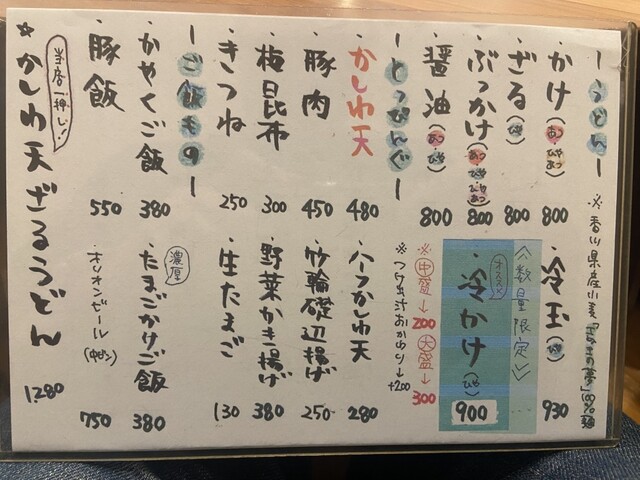 ーうどんー
・かけ(あつ ひや) 800
・ざる(ひや) 800
・ぶっかけ(あつ ひや ひやあつ) 800
・醤油(あつ ひや) 800
※香川県産小麦「さぬきの夢」100%麺
・冷玉(ひや) 930
《数量限定》
オススメ
・冷かけ(ひや) 900
※中盛→200 大盛→300
※つけ出汁おかわり→+200
ーとっぴんぐー
・かしわ天 480
・豚肉 450
・梅昆布 300
・きつね 250
・ハーフかしわ天 280
・竹輪磯辺揚げ 250
・野菜かき揚げ 380
・生たまご 130
ーご飯ものー
・かやくご飯 380
・豚飯 550
濃厚
・たまごかけご飯 380
・オリオンビール(中ビン) 750
当店一押し!
★かしわ天ざるうどん 1280